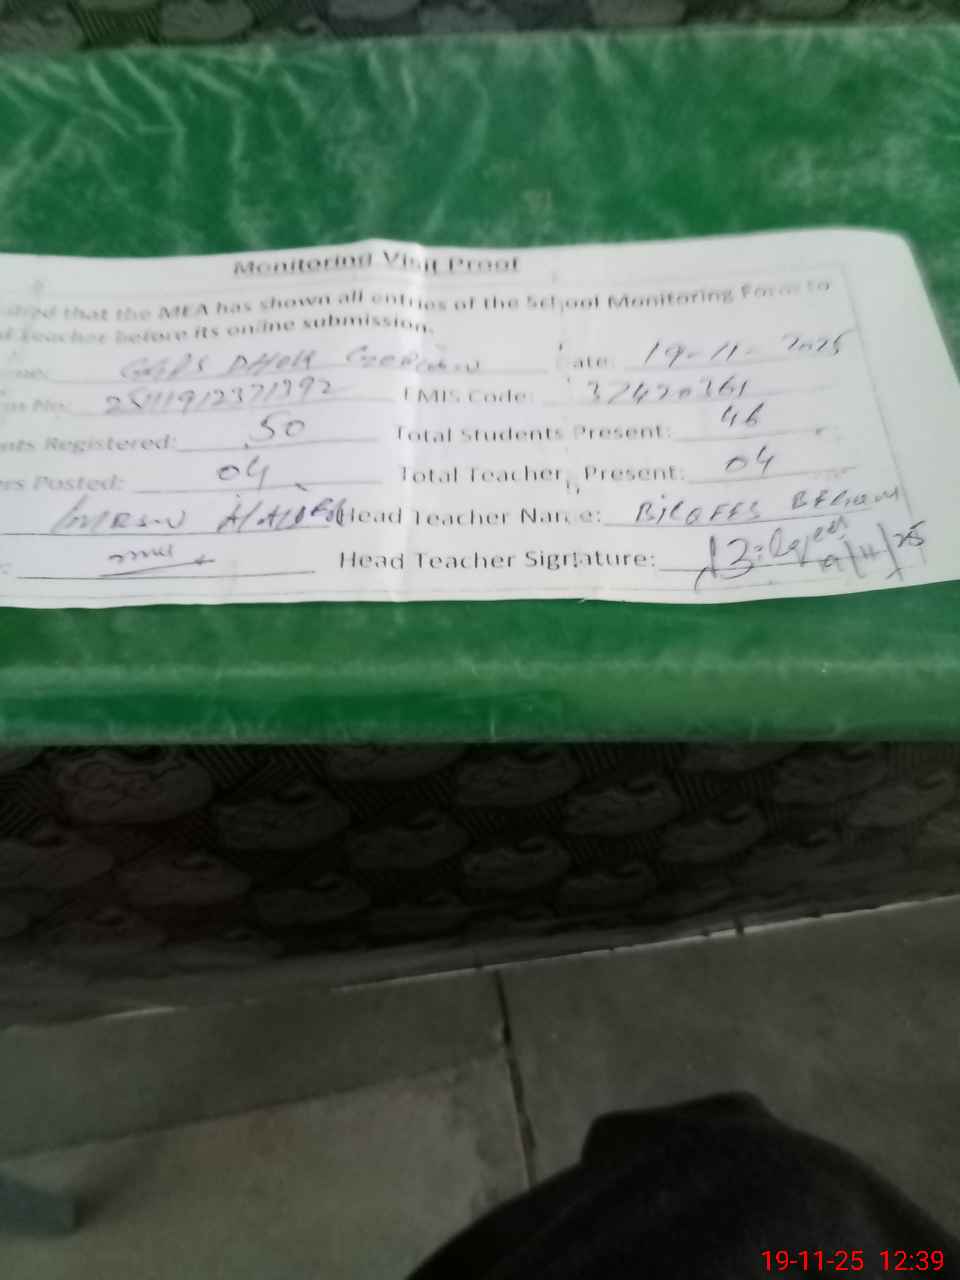 Monitoring Visit Proof
that the MEA has shown all entries of the School Monitoring Form to
Teacher before its online submission.
GGPS DHOK Date: 19-11-2025
No: EMIS Code: 37420361
nts Registered: 50 Total Students Present: 46
rs Posted: 04 Total Teachers Present: 04
IMRAN Head Teacher Name: BILQEES BEGUM
Head Teacher Signature:
19-11-25 12:39